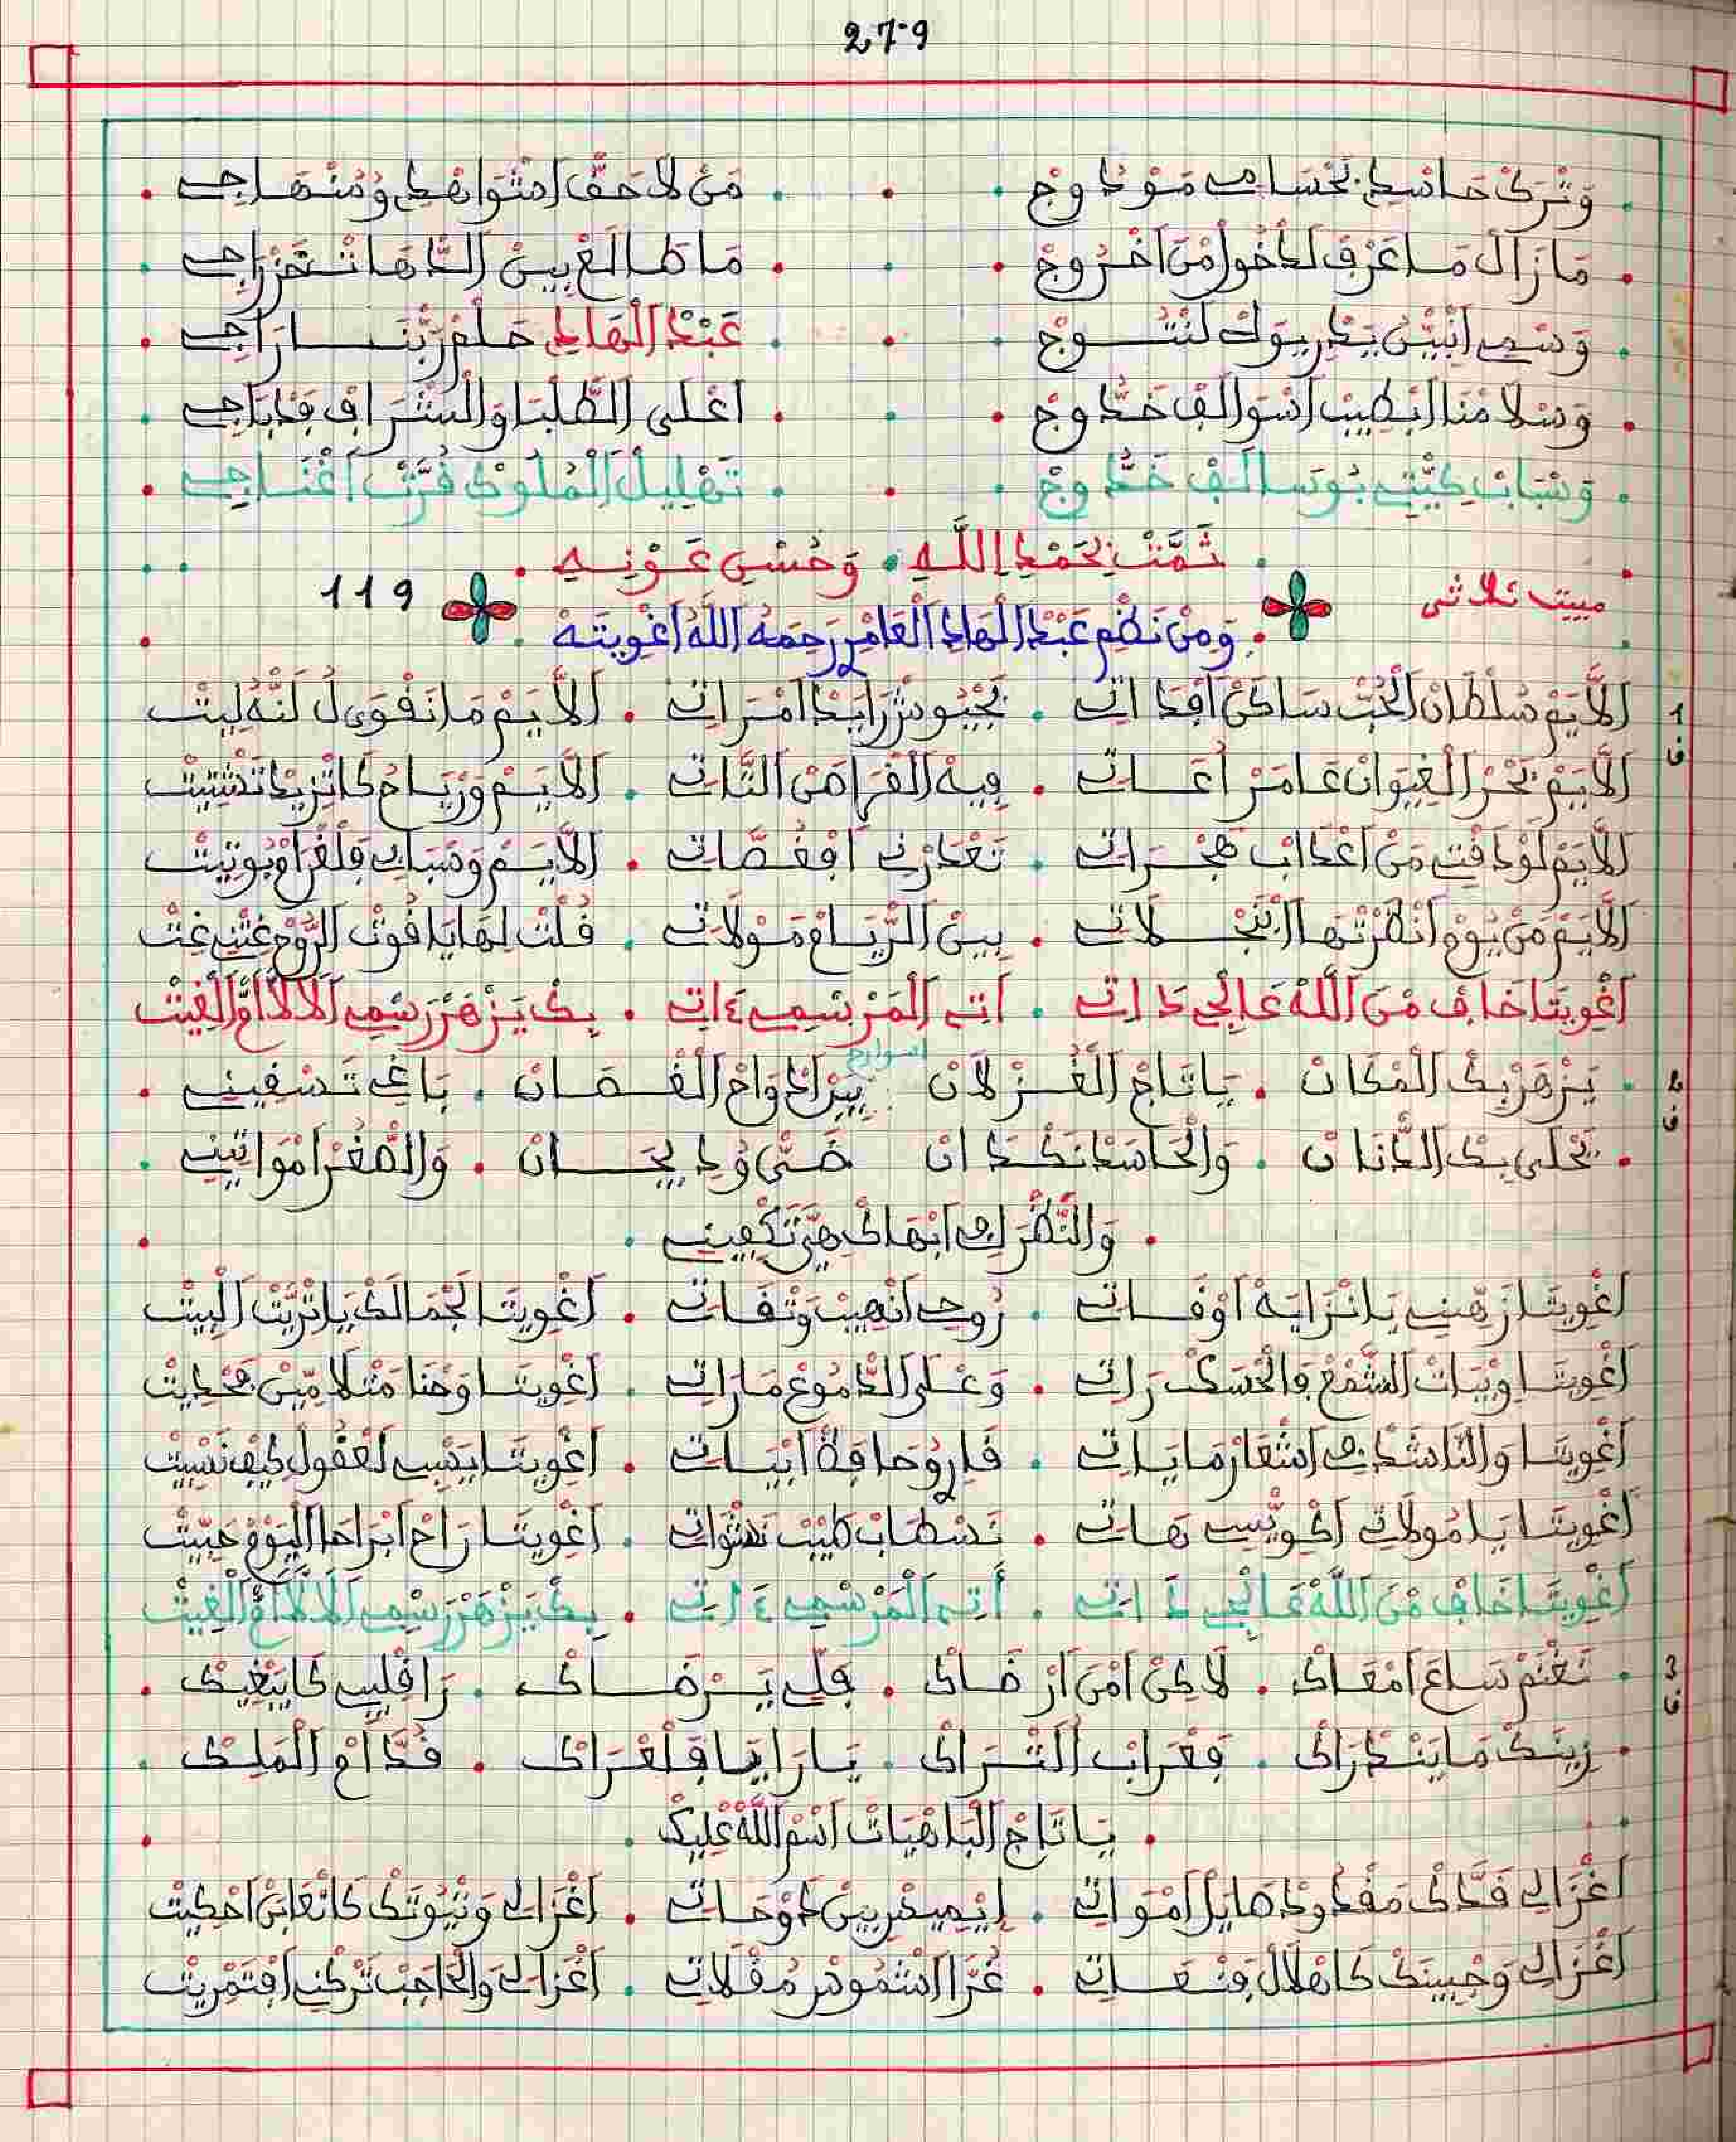 279
وَتْرَكْ حَاسْدِي بَحْسَامِي مَوْدُوجْ . مَنْ لَا حَقّ اشْوَاهْدِي وُمَنْهَاجِي
مَا زَالْ مَا عَرْفْ لَدْخُولْ مَنْ اَخْرُوجْ . مَا طَالَعْ بِينْ الدَّهَاتْ تَخْرَاجِي
وَسْمِي انْبَيّنْ يَدْرِيوَكْ لَنْتُوجْ . عَبْدْ الْهَادِي حَلْمْ رَبّنَا رَاجِي
وَسْلَامْنَا ابْطِيبْ اسْوَالَفْ خَدُّوجْ . اعْلَى الطَّلْبَا وَالْشْرَافْ
وَسْبَابْ كِيّتِي بُوسَالَفْ خَدُّوجْ . تَهْلِيلْ الْمْلُوكْ قُرّتْ اغْنَاجِي
تَمَّتْ بِحَمْدِ اللَّهِ . وَحُسْنِ عَوْنِهِ
مبيت ثلاثي
119
وَمِنْ نَظْمِ عَبْدْ الْهَادِ الْعَامْرِ رَحِمَهُ اللَّهُ اغْوِيتَهْ
1
ف
اَلَايَمْ سُلْطَانْ الْحُبّ سَاكَنْ افْدَاتِي . بَجْيُوشْ رَايَدْ امْرَاتِي . اَلَايَمْ مَا نَقْوَى لُ لَنُّه لِيتْ
اَلَايَمْ بَحْرْ الْغِيوَانْ عَامَرْ . فِيهْ الْغْرَامْ التَّاتِي . اَلَايَمْ وَرْيَاحُ كَاتْزِيدْ تَشْتِيتْ
اَلَايَمْ لَوْ دَقْتِي مَنْ اعْدَابْ هَجْرَاتِي . تَعْدَرْنِي افْغُصَّاتِي . اَلَايَمْ وَسْبَابِي فَلْغْرَامْ بُوتِيتْ
اَلَايَمْ مَنْ يُومْ انْظَرْتْهَا ابْنَجْلَاتِي . بِينْ الرّْيَامْ مَوْلَاتِي . قُلْتْ لِهَا يَا قُوتْ الرُّوحْ غِتْنِي غِتْ
اغْوِيتَا خَافْ مْنَ اللَّهْ عَالْجِي دَاتِي . اتِي الْمَرْسْمِي ءَاتِي . بِكْ يَزْهَرْ رَسْمِي اَلَالَّا امّْ الْغِيتْ
2
ف
يَزْهَرْ بِكْ الْمْكَانْ . يَا تَاجْ الْغُزْلَانْ . بِينْ ادْوَاحْ الْغْصَانْ . بَاغِي تَسْقِينِي
اسوارح
يَحْلَى بِكْ الدّْنَانْ . وَالْحَاسَدْ نَكْدَانْ . حَتَّى وُدِيحَانْ . وَالصُّغْرَ امْوَاتِينِي
وَالنَّظْرَ فِي ابْهَاكْ هِيَّ تَكْفِينِي
اغْوِيتَا زَهِّينِي يَا نْزَايَهْ اوْقَاتِي . رُوحِي انْهِيبْ وَتْقَاتِي . اغْوِيتَا لَجْمَالَكْ يَا تْرِيّتْ الْبِيتْ
اغْوِيتَا وِبْيَاتْ الشَّمْعْ فَالْحْسَكْ رَاتِي . وَعْلَى الدّْمُوعْ مَارَاتِي . اغْوِيتَا وَحْنَا مَثْلَامِّينْ مَحْدِيتْ
اغْوِيتَا وَالنَّاشَدْ فِي اشْعَارْ مَايَاتِي . قَارُوحَا قَةْ ابْيَاتِي . اغْوِيتَا يَسْبِي لَعْقُولْ كِيفْ نَسِّيتْ
اغْوِيتَا يَا مُولَاتِي اكْوِيّسِي هَاتِي . نَسْطَابْ طِيبْ نَشْوَاتِي . اغْوِيتَا رَاحْ ابْرَاحَا الْيُومْ حَبِّيتْ
اغْوِيتَا خَافْ مْنَ اللَّهْ عَالْجِي دَاتِي . اتِي الْمَرْسْمِي ءَاتِي . بِكْ يَزْهَرْ رَسْمِي اَلَالَّا امّْ الْغِيتْ
3
ف
نَغْنَمْ سَاعَ امْعَاكْ . لَاكِنْ امْنَ ارْضَاكْ . قَلّي يَرْضَاكْ . رَا قَلْبِي كَايَبْغِيكْ
زِينَكْ مَا يَنْدْرَاكْ . فَعْرَابْ التْرَاكْ . يَا رَايَا فَلْعْرَاكْ . قُدَّامْ الْمَلِيكْ
يَا تَاجْ الْبَاهْيَاتْ اسْمْ اللَّهْ عْلِيكْ
اغْزَالِي قَدَّكْ مَقْدُودْ هَايَلْ امْوَاتِي . اِيْمِيدْ بِينْ دَوْحَاتِي . اغْزَالِي وَتْيُوتَكْ كَاتْعَابَنْ احْكِيتْ
اغْزَالِي وَجْبِينَكْ كَاهْلَالْ فَنْعَاتِي . غُرَّا اشْمُوسْ مُقْلَاتِي . اغْزَالِي وَالْحَاجَبْ تَرْكْنِي افْتَمْرِيتْ